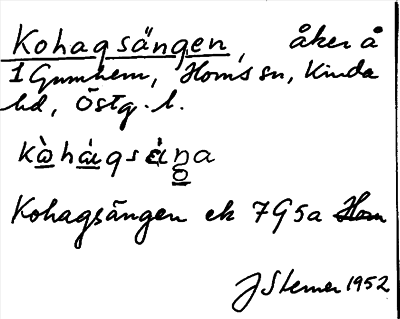 Kohagsängen, åker å
1 Gumhem, Horns sn, Kinda
hd, Östg. l.
Kohagsängen ek 795a
J Sterner 1952